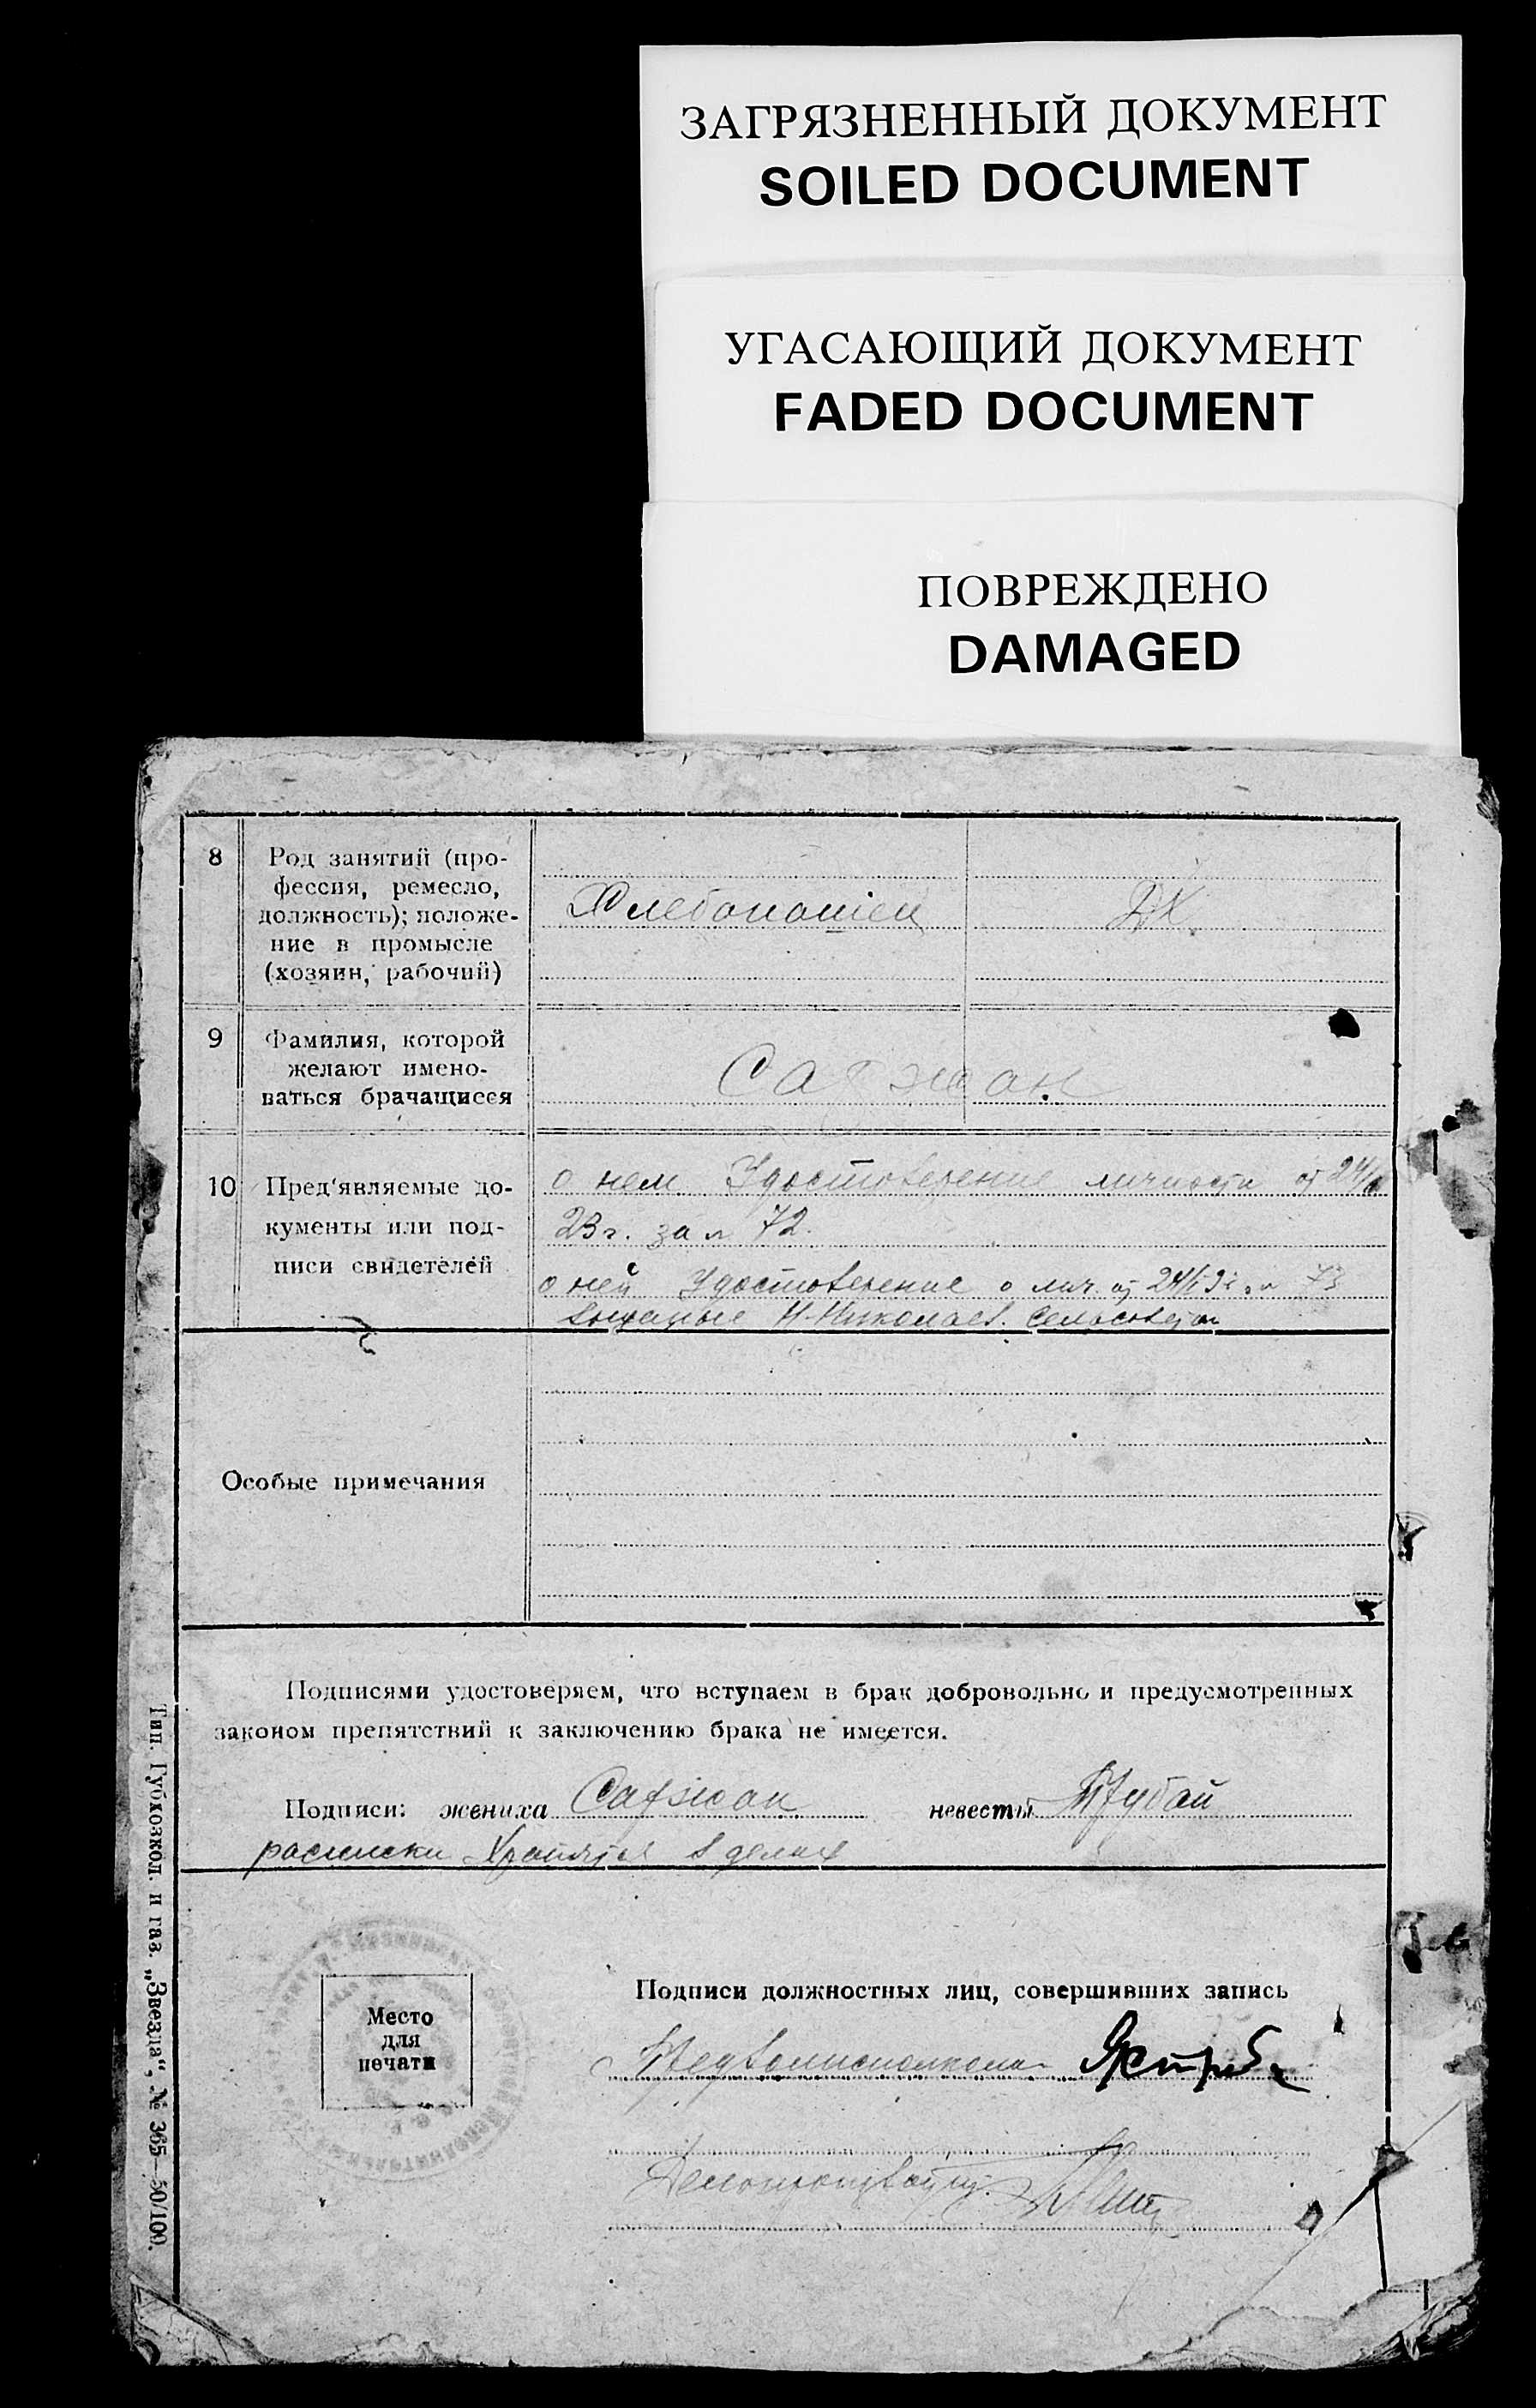 ЗАГРЯЗНЕННЫЙ ДОКУМЕНТ
SOILED DOCUMENT
УГАСАЮЩИЙ ДОКУМЕНТ
FADED DOCUMENT
ПОВРЕЖДЕНО
DAMAGED
8 Род занятий (про-
фессия, ремесло,
должность); положе-
ние в промысле
(хозяин, рабочий)
Хлебопашец
ДХ
9 Фамилия, которой
желают имено-
ваться брачащиеся
10 Пред'являемые до-
кументы или под-
писи свидетелей
о нем Удостоверение личности от
23 г. за № 72.
о ней Удостоверение о лич. от 73
Н-Николаев. Сельсоветом
Особые примечания
Подписями удостоверяем, что вступаем в брак добровольно и предусмотренных
законом препятствий к заключению брака не имеется.
Подписи: жениха невесты Трубай
расписки хранятся в делах
Место
для
печати
Подписи должностных лиц, совершивших запись
Предволисполкома
Делопроизвод
Тип. Губкозкол. и газ. „Звезда“, № 365—50/100.